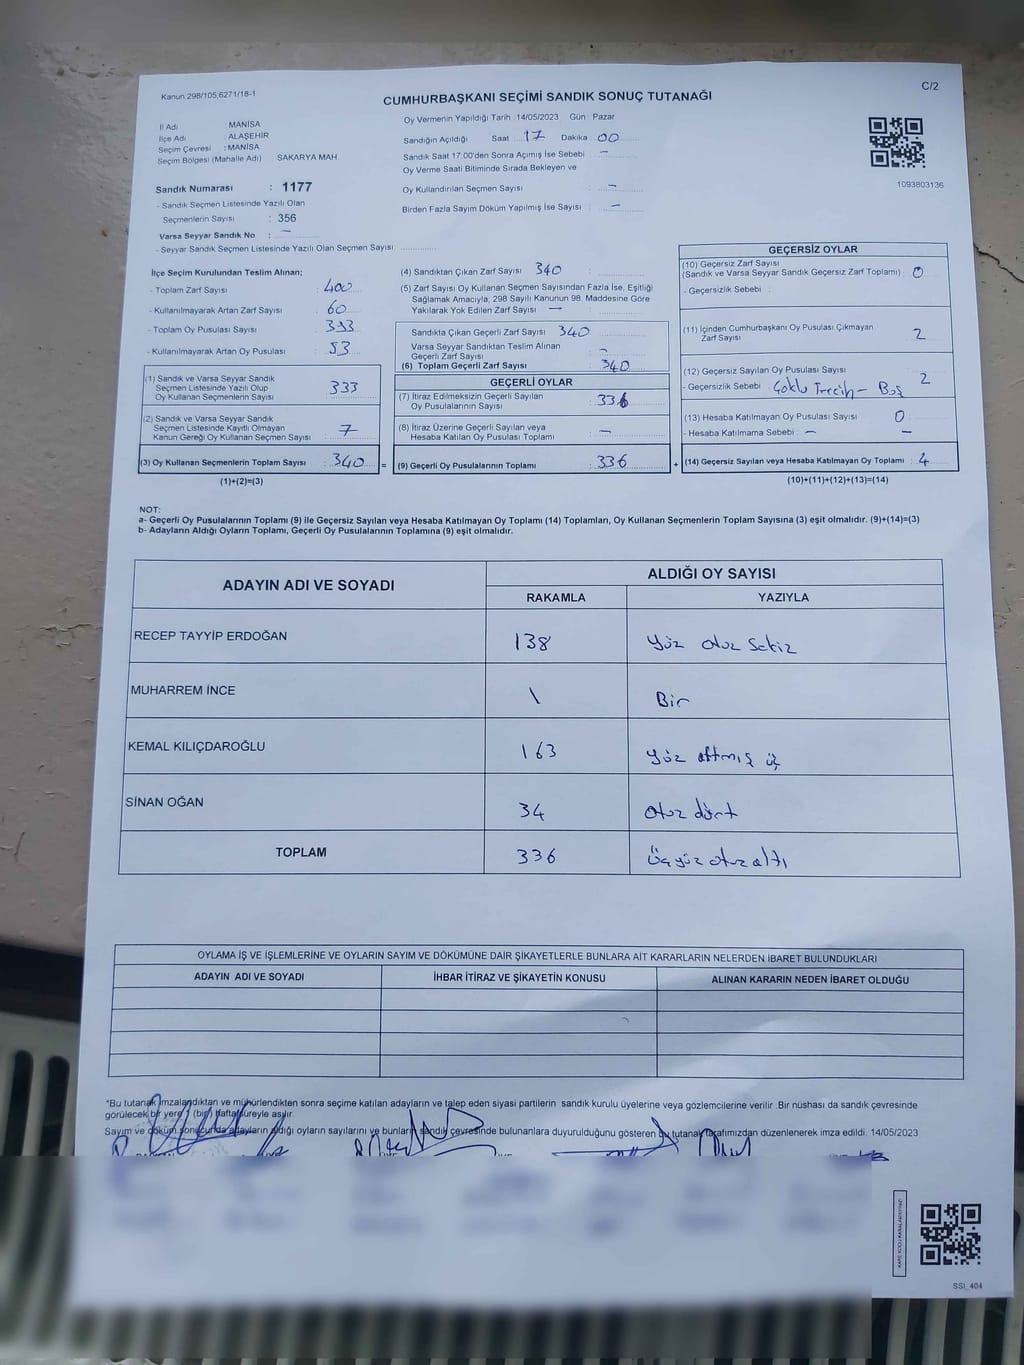 Kanun 298/105,6271/18-1
C/2
CUMHURBAŞKANI SEÇİMİ SANDIK SONUÇ TUTANAĞI
İl Adı : MANİSA
İlçe Adı : ALAŞEHİR
Seçim Çevresi : MANİSA
Seçim Bölgesi (Mahalle Adı) SAKARYA MAH.
Sandık Numarası : 1177
- Sandık Seçmen Listesinde Yazılı Olan
Seçmenlerin Sayısı : 356
Varsa Seyyar Sandık No : —
- Seyyar Sandık Seçmen Listesinde Yazılı Olan Seçmen Sayısı: ............
Oy Vermenin Yapıldığı Tarih :14/05/2023 Gün : Pazar
Sandığın Açıldığı Saat 17 Dakika 00
Sandık Saat 17:00'den Sonra Açımış İse Sebebi : —
Oy Verme Saati Bitiminde Sırada Bekleyen ve
Oy Kullandırılan Seçmen Sayısı : —
Birden Fazla Sayım Döküm Yapılmış İse Sayısı : —
1093803136
İlçe Seçim Kurulundan Teslim Alınan;
- Toplam Zarf Sayısı : 400
- Kullanılmayarak Artan Zarf Sayısı : 60
- Toplam Oy Pusulası Sayısı : 393
- Kullanılmayarak Artan Oy Pusulası : 53
(1) Sandık ve Varsa Seyyar Sandık
Seçmen Listesinde Yazılı Olup
Oy Kullanan Seçmenlerin Sayısı : 333
(2) Sandık ve Varsa Seyyar Sandık
Seçmen Listesinde Kayıtlı Olmayan
Kanun Gereği Oy Kullanan Seçmen Sayısı : 7
(3) Oy Kullanan Seçmenlerin Toplam Sayısı : 340
(1)+(2)=(3)
(4) Sandıktan Çıkan Zarf Sayısı 340
(5) Zarf Sayısı Oy Kullanan Seçmen Sayısından Fazla İse, Eşitliği
Sağlamak Amacıyla; 298 Sayılı Kanunun 98. Maddesine Göre
Yakılarak Yok Edilen Zarf Sayısı : —
Sandıkta Çıkan Geçerli Zarf Sayısı 340
Varsa Seyyar Sandıktan Teslim Alınan
Geçerli Zarf Sayısı : —
(6) Toplam Geçerli Zarf Sayısı : 340
GEÇERLİ OYLAR
(7) İtiraz Edilmeksizin Geçerli Sayılan
Oy Pusulalarının Sayısı : 336
(8) İtiraz Üzerine Geçerli Sayılan veya
Hesaba Katılan Oy Pusulası Toplamı : —
= (9) Geçerli Oy Pusulalarının Toplamı : 336
GEÇERSİZ OYLAR
(10) Geçersiz Zarf Sayısı
(Sandık ve Varsa Seyyar Sandık Geçersiz Zarf Toplamı) : 0
- Geçersizlik Sebebi :
(11) İçinden Cumhurbaşkanı Oy Pusulası Çıkmayan
Zarf Sayısı : 2
(12) Geçersiz Sayılan Oy Pusulası Sayısı : 2
- Geçersizlik Sebebi : Çoklu Tercih - Boş
(13) Hesaba Katılmayan Oy Pusulası Sayısı : 0
- Hesaba Katılmama Sebebi : — —
+ (14) Geçersiz Sayılan veya Hesaba Katılmayan Oy Toplamı : 4
(10)+(11)+(12)+(13)=(14)
NOT:
a- Geçerli Oy Pusulalarının Toplamı (9) ile Geçersiz Sayılan veya Hesaba Katılmayan Oy Toplamı (14) Toplamları, Oy Kullanan Seçmenlerin Toplam Sayısına (3) eşit olmalıdır. (9)+(14)=(3)
b- Adayların Aldığı Oyların Toplamı, Geçerli Oy Pusulalarının Toplamına (9) eşit olmalıdır.
ADAYIN ADI VE SOYADI ALDIĞI OY SAYISI
RAKAMLA YAZIYLA
RECEP TAYYİP ERDOĞAN 138 Yüz otuz sekiz
MUHARREM İNCE 1 Bir
KEMAL KILIÇDAROĞLU 163 Yüz altmış üç
SİNAN OĞAN 34 Otuz dört
TOPLAM 336 Üçyüz otuz altı
OYLAMA İŞ VE İŞLEMLERİNE VE OYLARIN SAYIM VE DÖKÜMÜNE DAİR ŞİKAYETLERLE BUNLARA AİT KARARLARIN NELERDEN İBARET BULUNDUKLARI
ADAYIN ADI VE SOYADI İHBAR İTİRAZ VE ŞİKAYETİN KONUSU ALINAN KARARIN NEDEN İBARET OLDUĞU
*Bu tutanak imzalandıktan ve mühürlendikten sonra seçime katılan adayların ve talep eden siyasi partilerin sandık kurulu üyelerine veya gözlemcilerine verilir .Bir nüshası da sandık çevresinde
görülecek bir yere 1 (bir) hafta süreyle asılır.
Sayım ve döküm sonucunda adayların aldığı oyların sayılarını ve bunların sandık çevresinde bulunanlara duyurulduğunu gösteren bu tutanak tarafımızdan düzenlenerek imza edildi. 14/05/2023
SSI_404